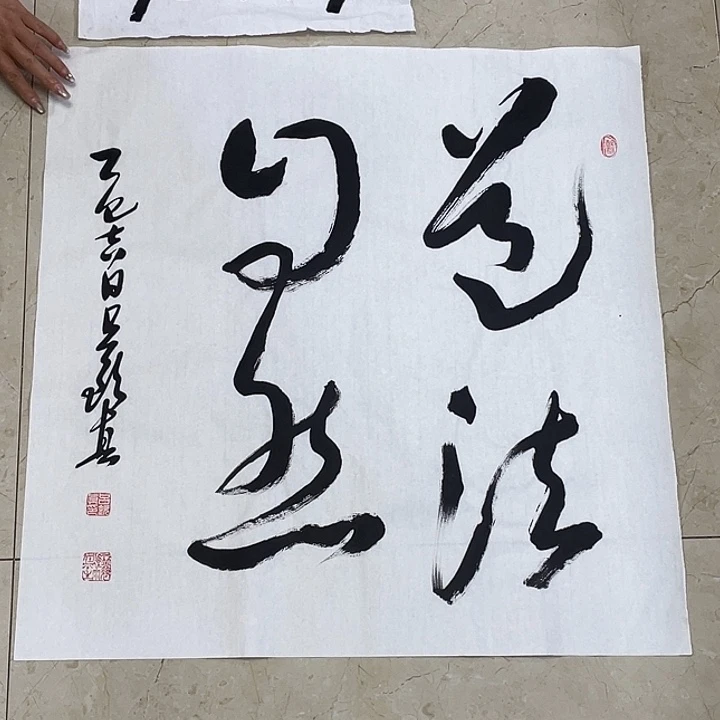 道法
自然
乙巳吉日吕
真